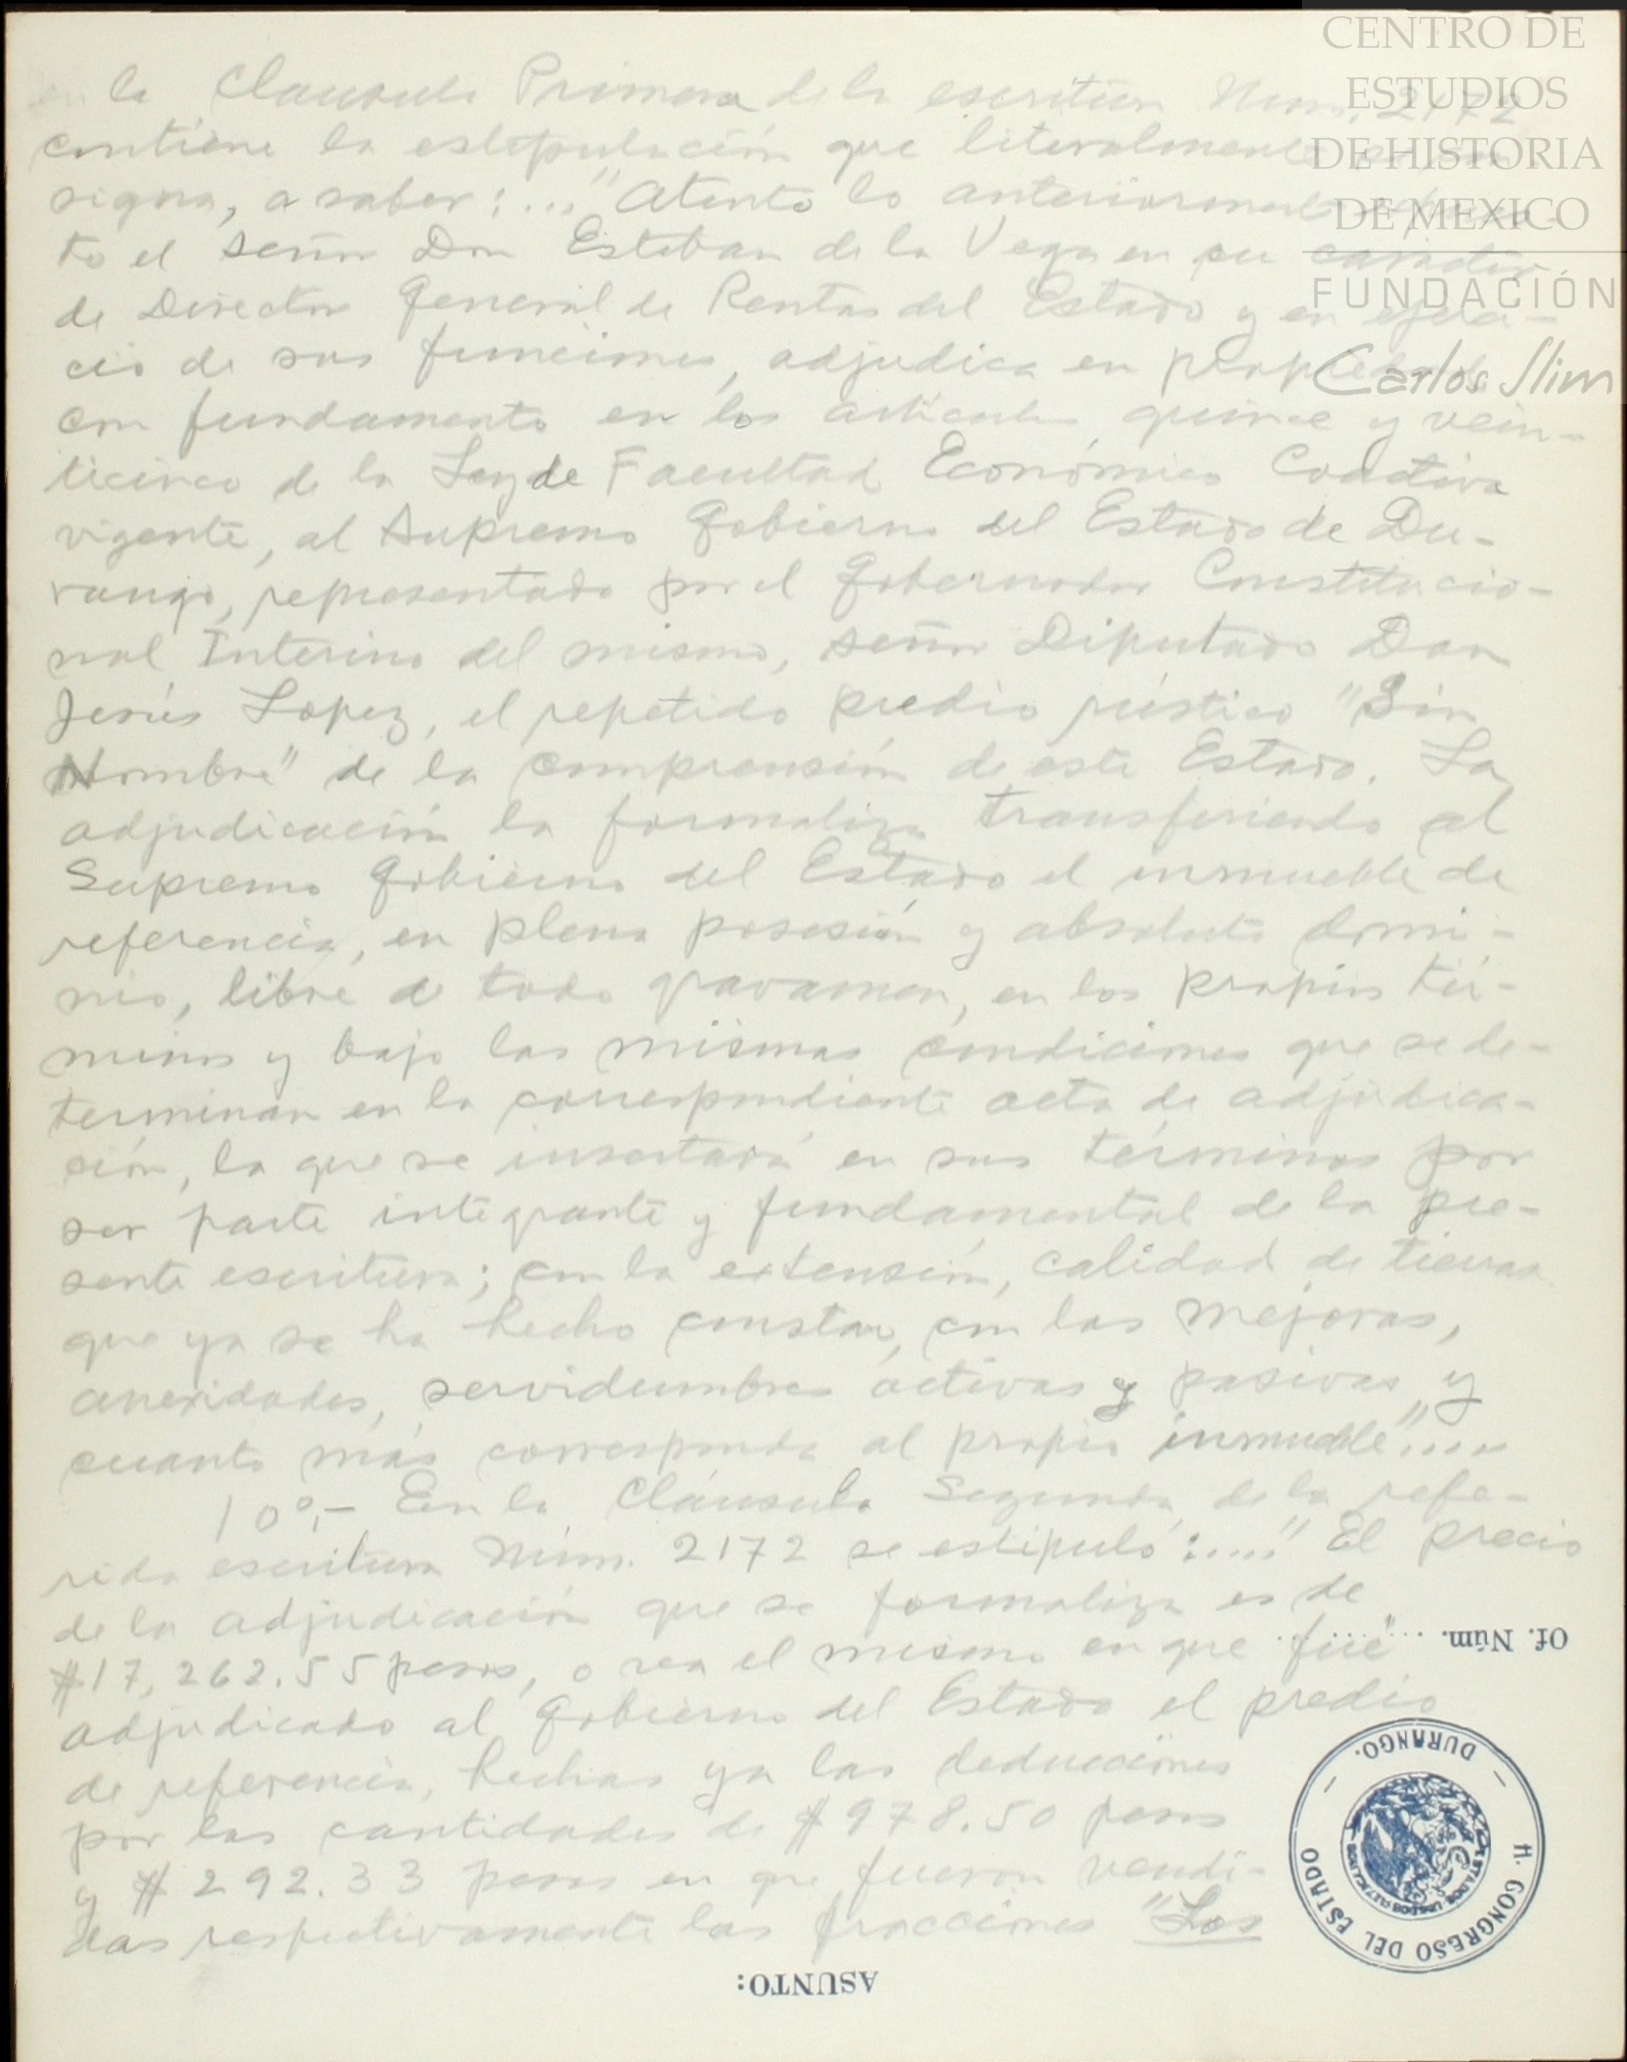 CENTRO DE
ESTUDIOS
DE HISTORIA
DE MEXICO
FUNDACIÓN
Carlos Slim
la Clausula Primera de la escritura Num. 2172
contiene la estipulación que literalmente
signa, a saber:..." Atento lo anteriormente
to el señor Don Esteban de la Vega en su caracter
de Director General de Rentas del Estado y en ejerci-
cio de sus funciones, adjudica en propiedad
con fundamento en los articulos quince y vein-
ticinco de la Ley de Facultad Económico Coactiva
vigente, al Supremo Gobierno del Estado de Du-
rango, representado por el Gobernador Constitucio-
nal Interino del mismo, señor Diputado Don
Jesús Lopez, el repetido predio rústico "Sin
Nombre" de la comprensión de este Estado. La
adjudicación la formaliza transfiriendo al
Supremo Gobierno del Estado el inmueble de
referencia, en plena posesión y absoluto domi-
nio, libre de todo gravamen, en los propios tér-
minos y bajo las mismas condiciones que se de-
terminan en la correspondiente acta de adjudica-
ción, la que se insertará en sus términos por
ser parte integrante y fundamental de la pre-
sente escritura; con la extensión, calidad de tierras
que ya se ha hecho constar, con las mejoras,
anexidades, servidumbres activas y pasivas y
cuanto más corresponda al propio inmueble"....
10º.- En la Cláusula Segunda de la refe-
rida escritura Núm. 2172 se estipuló:...." El precio
de la adjudicación que se formaliza es de
$17,262.55 pesos, o sea el mismo en que fué
adjudicado al Gobierno del Estado el predio
de referencia, hechas ya las deducciones
por las cantidades de $978.50 pesos
y $292.33 pesos en que fueron vendi-
das respectivamente las fracciones "Los
Of. Núm. ..........
H. CONGRESO DEL ESTADO
DURANGO.
ESTADOS UNIDOS MEXICANOS
ASUNTO: